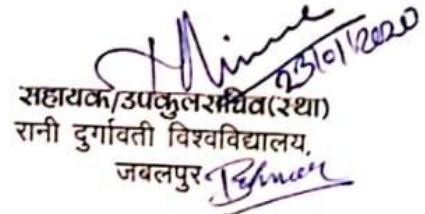 23/01/2020
सहायक/उपकुलसचिव(स्था)
रानी दुर्गावती विश्वविद्यालय,
जबलपुर